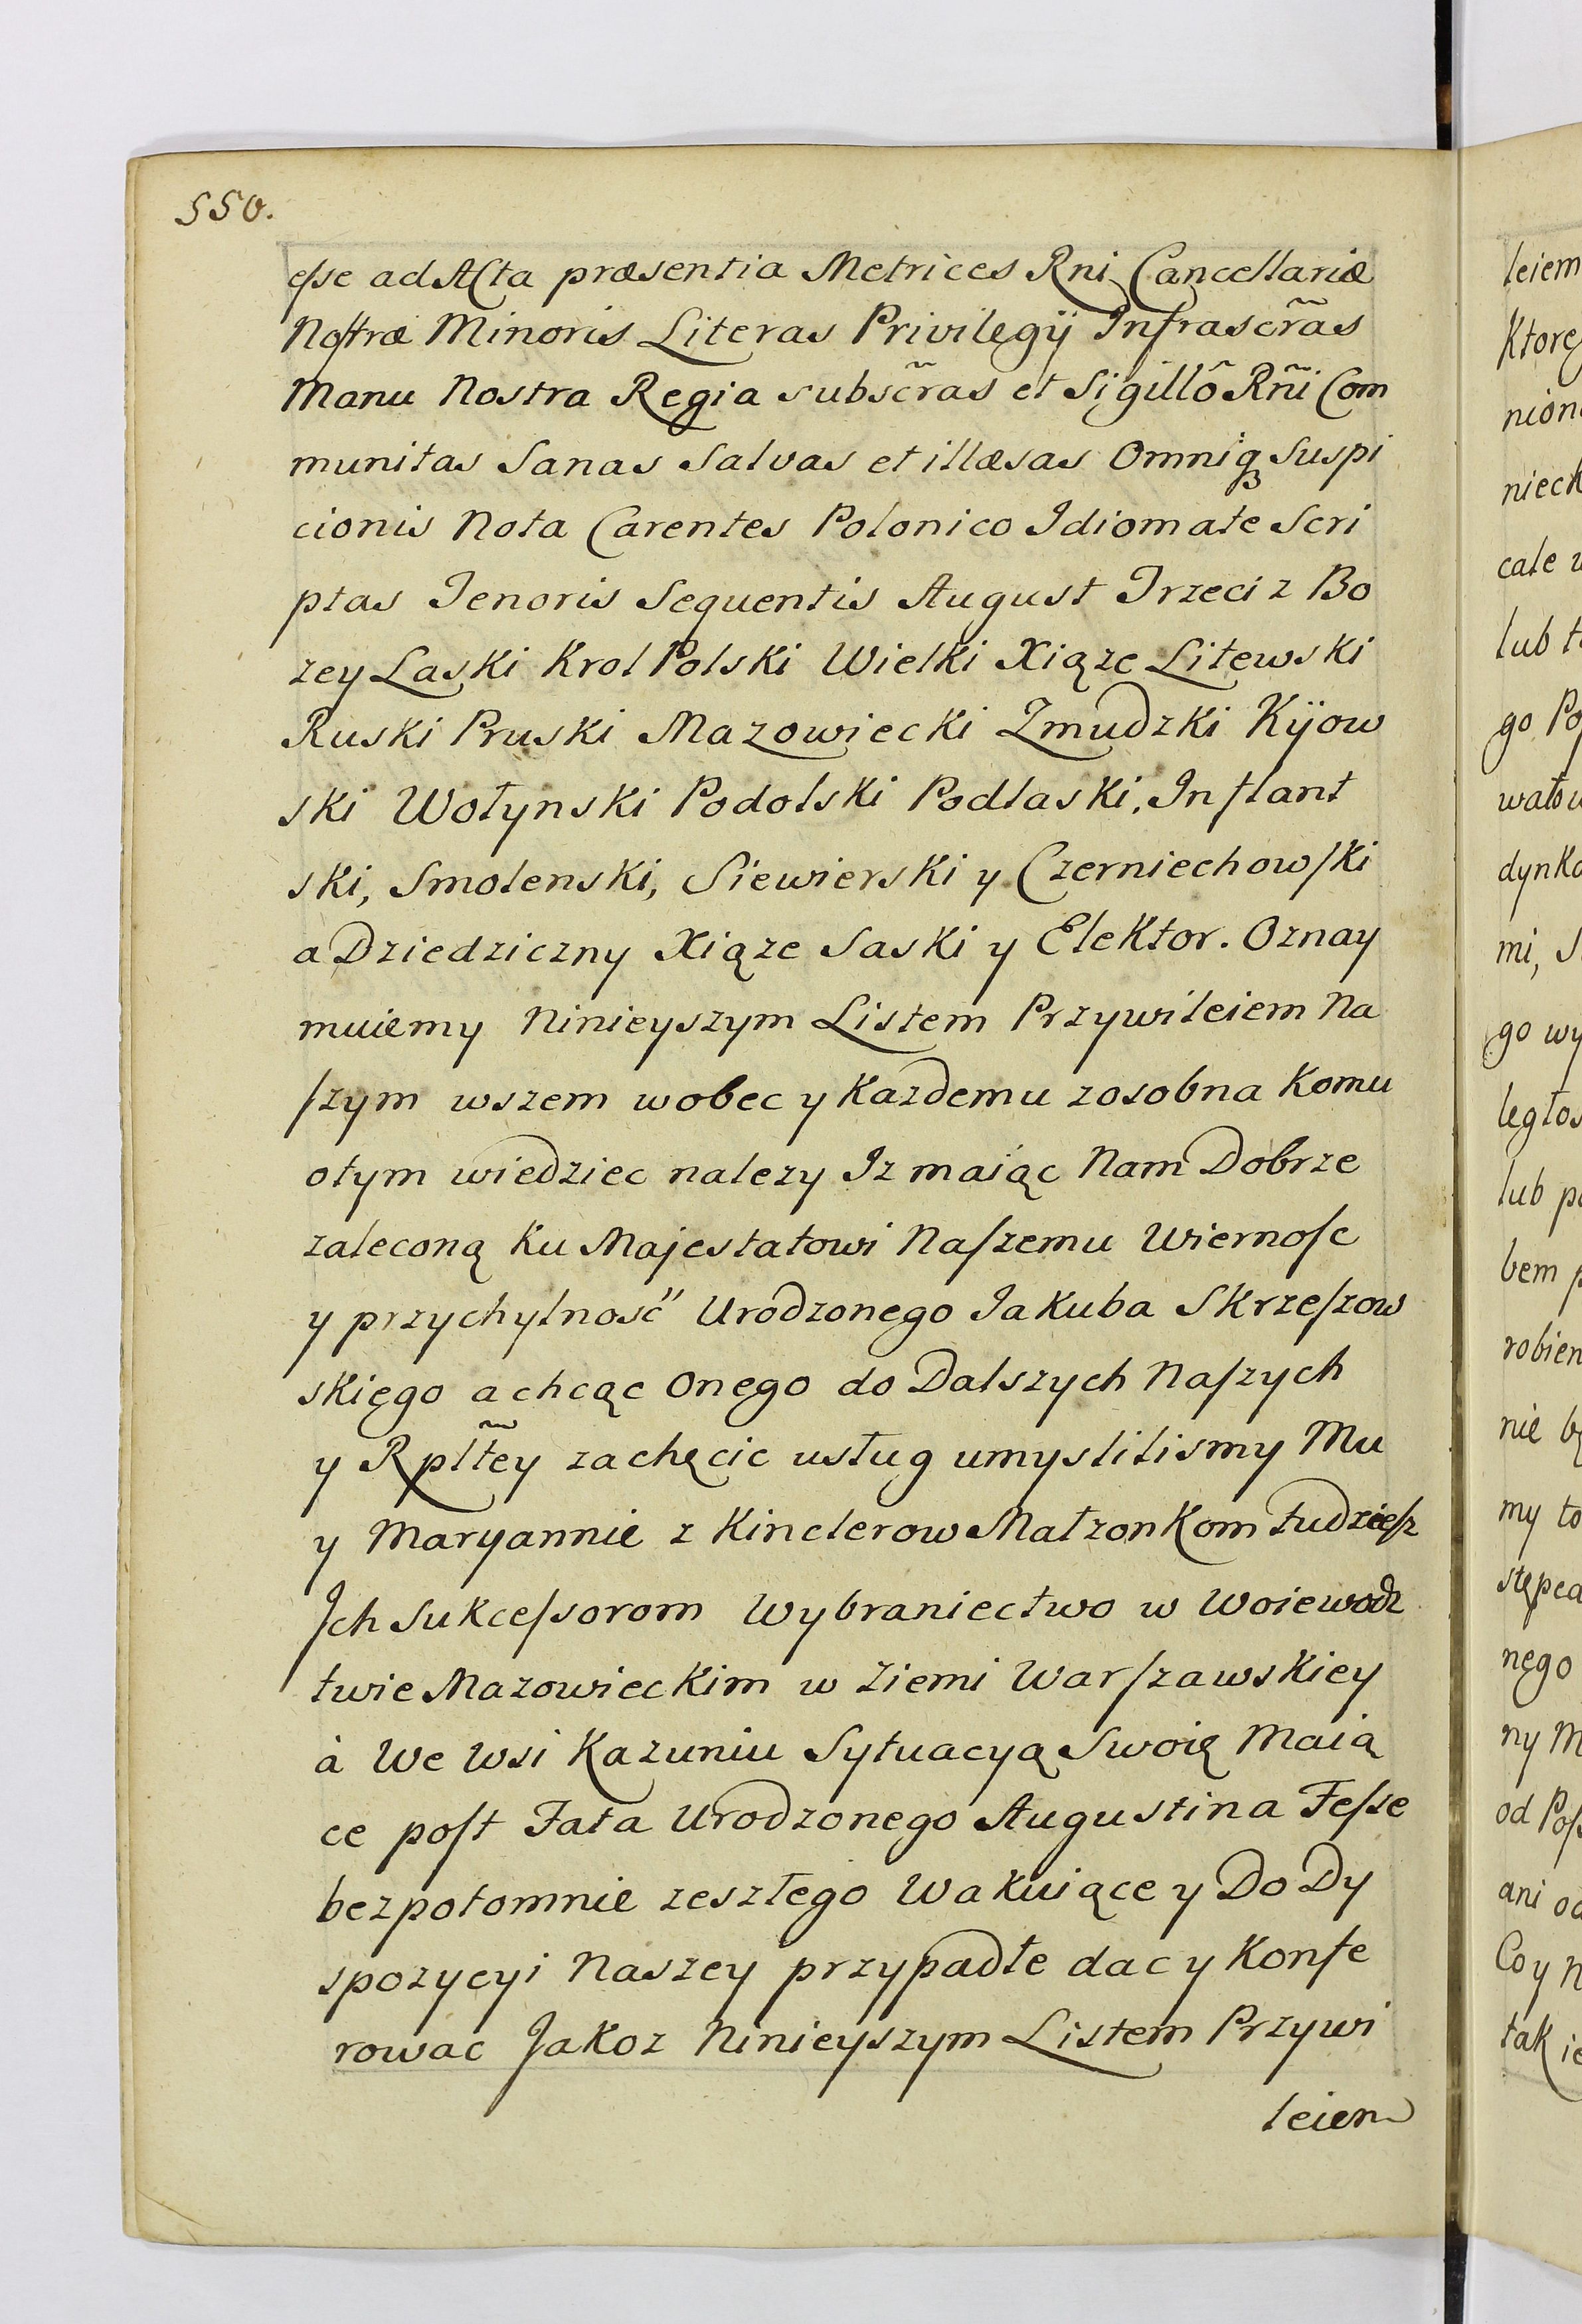 550.
eſse ad Acta præsentia Metrices Rni Cancellariæ
Noſtræ Minoris Literas Privilegÿ Infrascr̃as
Manu Nostra Regia subscr̃as et Sigillô Rñi Com
munitas Sanas Salvas et illæsas Omniq3 Suspi
cionis Nota Carentes Polonico Idiomate Scri
ptas Tenoris Sequentis August Trzeci z Bo
zey Laski Krol Polski Wielki Xiąze Litewski
Ruski Pruski Mazowiecki Zmudzki Kijow
ski Wołynski Podolski Podlaski, Inflant
ski, Smolenski, Siewierski y Czerniechowſki
a Dziedziczny Xiąze Saski y Elektor. Oznay
muiemy Ninieyszym Listem Przywileiem Na
ſzym wszem wobec y Kazdemu zosobna Komu
otym wiedziec nalezy Iz maiąc Nam Dobrze
zaleconą Ku Majestatowi Naſzemu Wiernoſc
y przychylność Urodzonego Jakuba Skrzeſzow
skięgo a chcąc Onego do Dalszych Naſzych
y Rpltẽy zachęcic usług umyslilismy Mu
y Maryannie z Kinclerow Małzonkom tudzieſz
Ich Sukceſsorom Wybraniectwo w Woiewodz
twie Mazowieckim w Ziemi Warſzawskiey
à We Wsi Kazuniu Sytuacyą Swoię Maią
ce poſt Fata Urodzonego Augustina Feſse
bezpotomnie zeszłego Wakuiące y Do Dy
spozycyi Naszey przypadłe dac y Konfe
rowac Jakoz Ninieyszym Listem Przywi
leiem
leiem
nion
cale
lub
go
mi,
go wy
ległos
lub
bem
robien
nie
my to
nęgo
ny
od
ani
Co y
tak